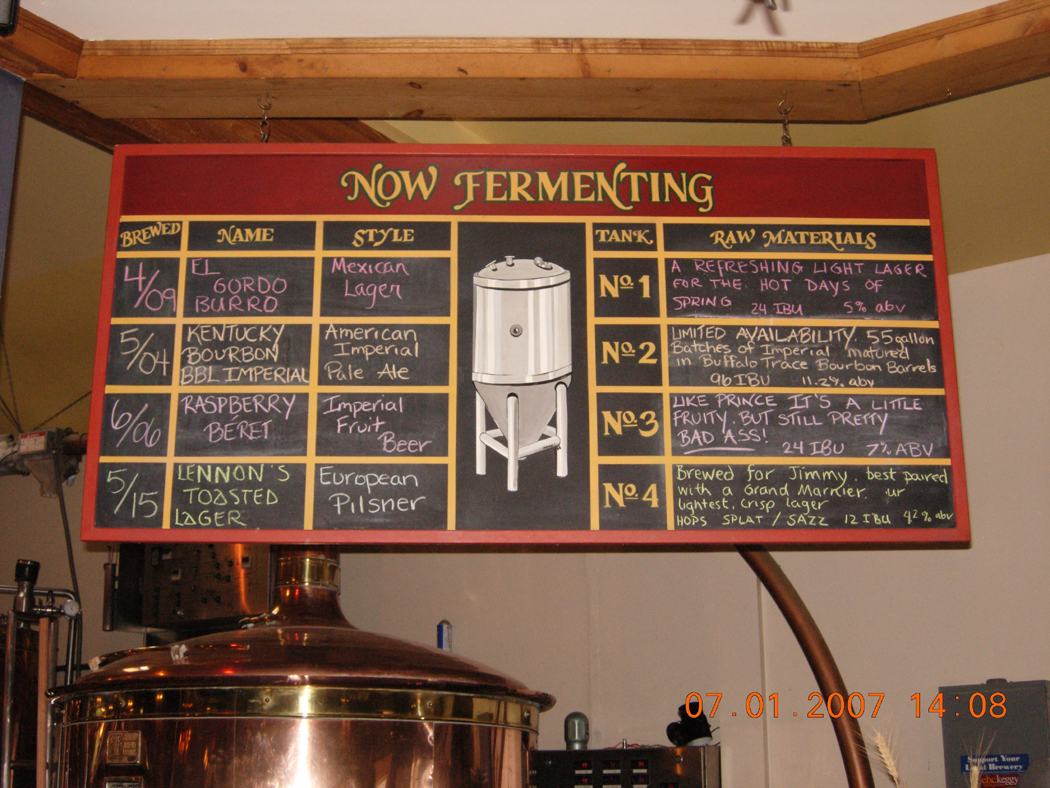 NOW FERMENTING
BREWED NAME STYLE TANK RAW MATERIALS
4/09
EL
GORDO
BURRO
Mexican
Lager
No. 1
A REFRESHING LIGHT LAGER
FOR THE HOT DAYS OF
SPRING 24 IBU 5% abv
5/04
KENTUCKY
BOURBON
BBL IMPERIAL
American
Imperial
Pale Ale
No. 2
LIMITED AVAILABILITY. 55 gallon
Batches of Imperial matured
in Buffalo Trace Bourbon Barrels
96 IBU 11.2% abv
6/06
RASPBERRY
BERET
Imperial
Fruit
Beer
No. 3
LIKE PRINCE IT'S A LITTLE
FRUITY. BUT STILL PRETTY
BAD ASS! 24 IBU 7% ABV
5/15
LENNON'S
TOASTED
LAGER
European
Pilsner
No. 4
Brewed for Jimmy, best paired
with a Grand Marnier. ur
lightest, crisp lager
HOPS SPLAT / SAZZ 12 IBU 4.2% abv
07.01.2007 14:08
Support Your
Local Brewery